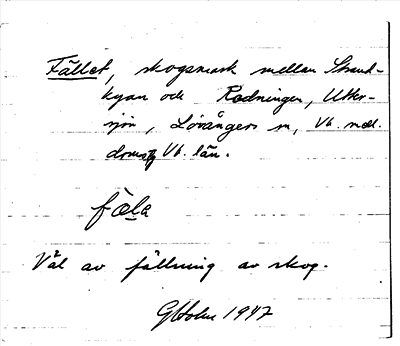 Fället, skogsmark mellan Strand-
kyan och Rodningen, Utter-
sjön, Lövångers sn, Vb. nedl.
domsg Vb. län.
fæla
Väl av fällning av skog.
GHolm 1947